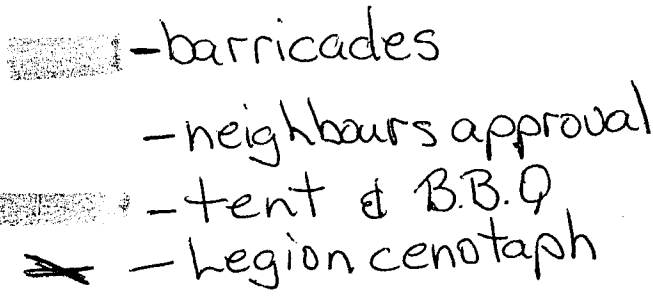 -barricades
-neighbours approval
-tent & B.B.Q
-Legion cenotaph